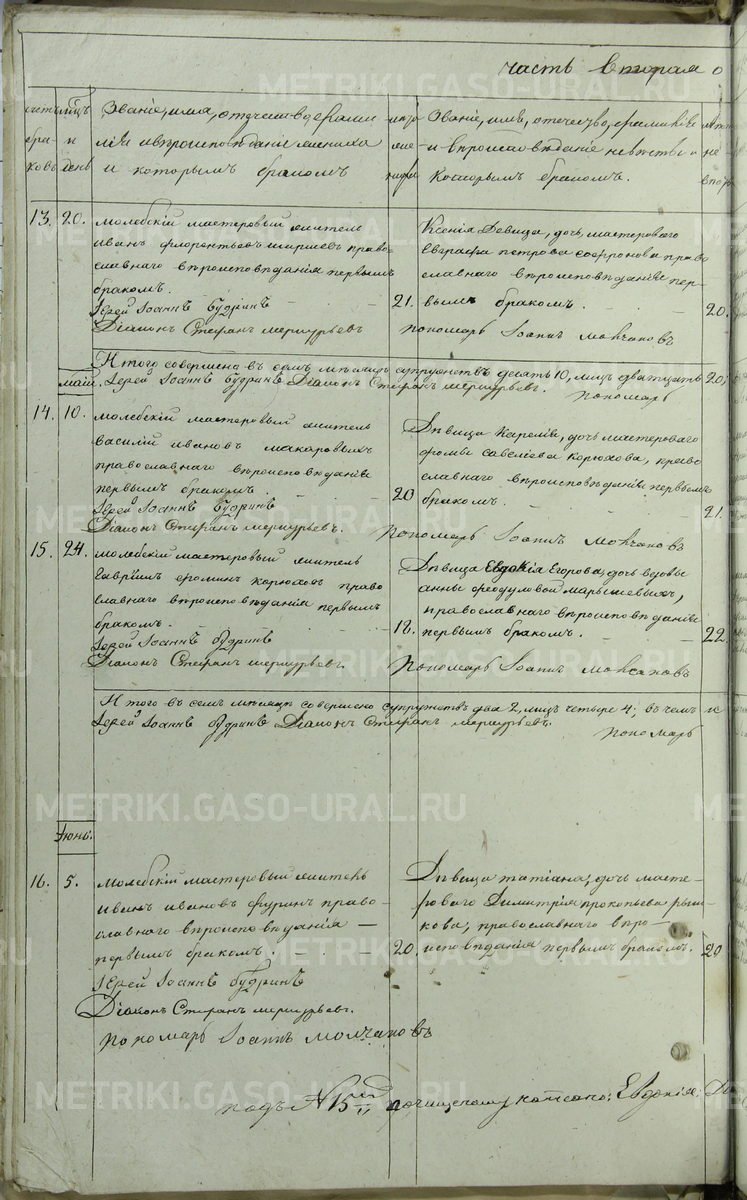 часть вторая о
METRIKI.GASO-URAL.RU
счетъ бра ковъ
мѣцъ и день
Званіе, имя, отчество, фами
лія и вѣроисповѣданіе жениха
и которымъ бракомъ
Званіе, имя, отчество, фамиліе
и вѣроисповѣданіе невѣсты и
которымъ бракомъ.
13. 20. молебскій мастеровый житель
иванъ флорентьевъ право
славнаго вѣроисповѣданія первымъ
бракомъ. 21.
Іерей Іоаннъ Будринъ
Діаконъ Стефанъ меркурьевъ
Ксенія Девица, дочь мастероваго
Евграфа петрова софронова право
славнаго вѣроисповѣданія пер
вымъ бракомъ. 20.
Пономарь Іоаннъ Молчановъ
Итого совершено въ семъ мѣсяцѣ супружествъ десять 10, лицъ дватцать 20;
маій. Іерей Іоаннъ Будринъ Діаконъ Стефанъ меркурьевъ. Пономарь
14. 10. молебскій мастеровый житель
василій ивановъ макаровыхъ
православнаго вѣроисповѣданія
первымъ бракомъ. 20
Іерей Іоаннъ Будринъ
Діаконъ Стефанъ меркурьевъ.
Дѣвица дочь мастероваго
фомы савеліева корюхова, право
славнаго вѣроисповѣданія первымъ
бракомъ 21.
Пономарь Іоаннъ Молчановъ
15. 24. молебскій мастеровый житель
Гавріилъ фоминъ корюховъ право
славнаго вѣроисповѣданія первымъ
бракомъ. 18.
Іерей Іоаннъ Будринъ
Діаконъ Стефанъ меркурьевъ.
Дѣвица Евдокія Егорова, дочь вдовы
анны феодуловой марышевыхъ,
православнаго вѣроисповѣданія
первымъ бракомъ. 22.
Пономарь Іоаннъ Молчановъ
Итого въ семъ мѣсяцѣ совершено супружествъ два 2, лицъ четыре 4; въ чемъ и
Іерей Іоаннъ Будринъ Діаконъ Стефанъ меркурьевъ. Пономарь
Іюнь.
16. 5. молебскій мастеровый житель
иванъ ивановъ право
славнаго вѣроисповѣданія
первымъ бракомъ. 20.
Іерей Іоаннъ Будринъ
Діаконъ Стефанъ меркурьевъ.
Пономарь Іоаннъ молчановъ
Дѣвица татіана, дочь масте
роваго Димитрія прокопьева рыш
кова, православнаго вѣро
исповѣданія первымъ бракомъ. 20
подъ № 15 почищеному Евдокія;